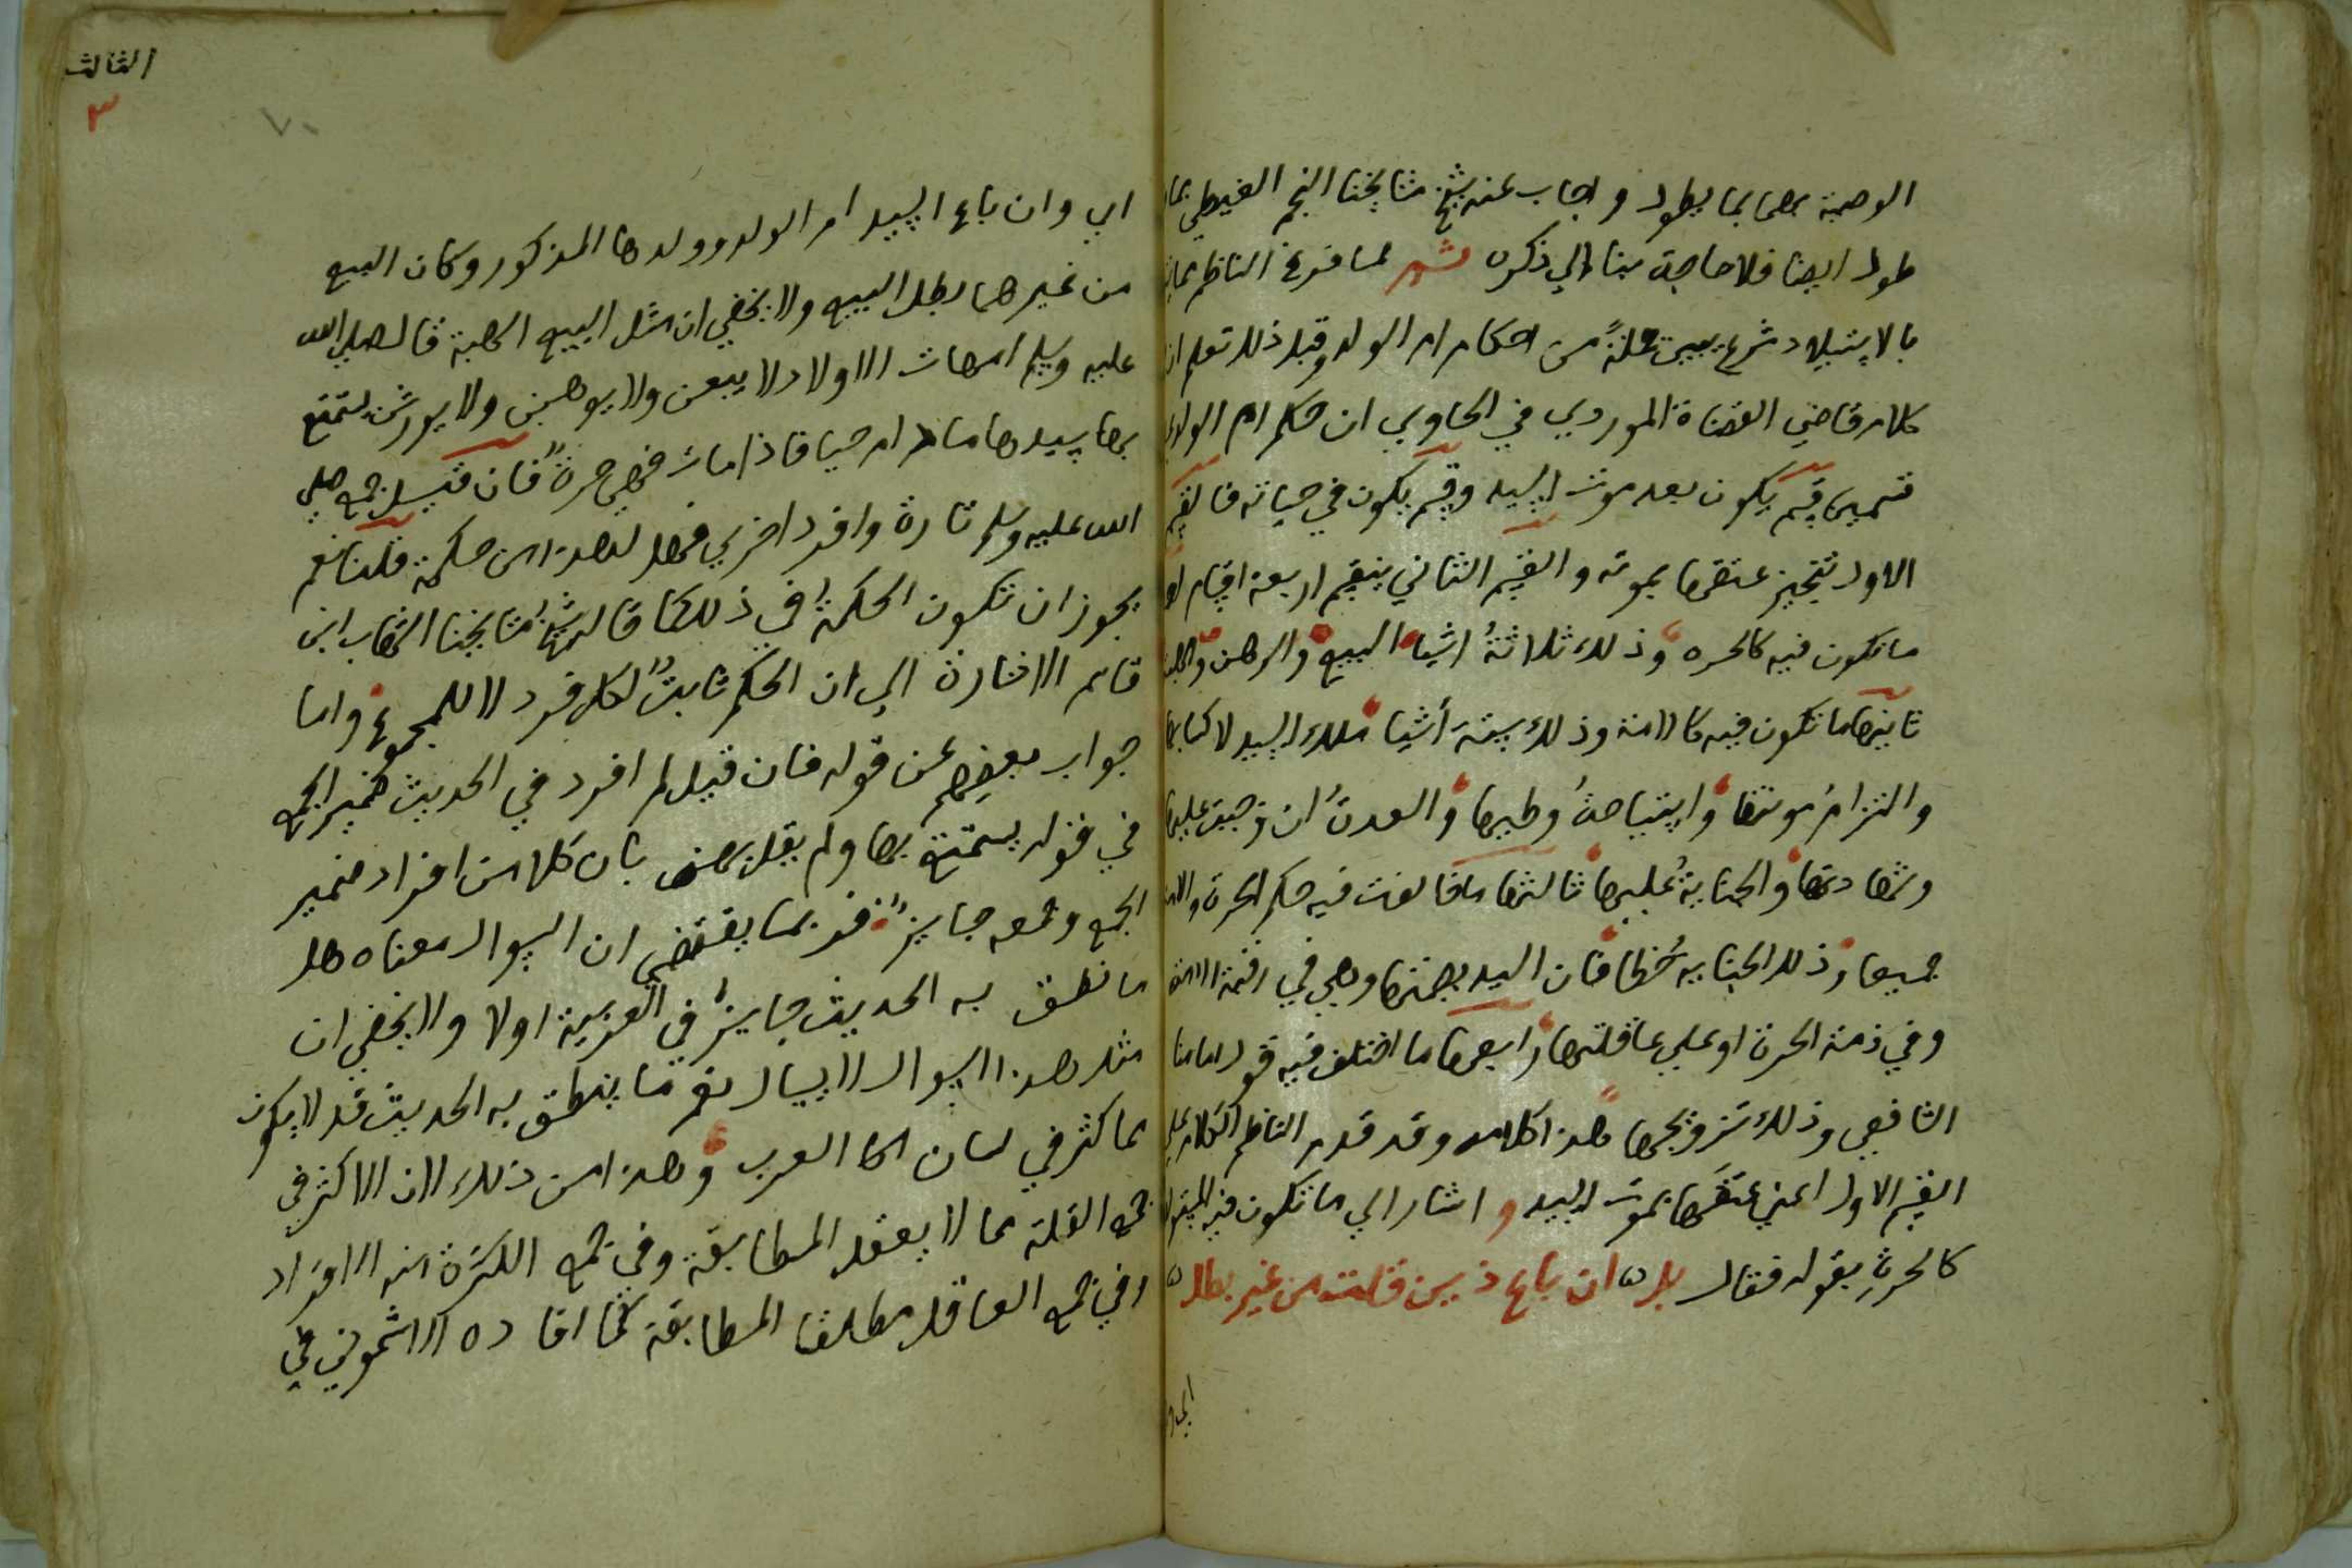 الوصية بهما بما يطول واجاب عنه شيخ مشايخنا النجم الغيطي بما
طول ايضا فلا حاجة بنا الي ذكره ثم لما فرغ الناظم مما
بالاستيلاد شرع يبين جملةً من احكام ام الولد وقبل ذلك تعلم ان
كلام قاضي القضاة الموردي في الحاوي ان حكم ام الولد
قسمين قسم يكون بعد موت السيد وقسم يكون في حياته فالقسم
الاول تنجيز عتقها بموته والقسم الثاني ينقسم اربعة اقسام
ما تكون فيه كالحره وذلك ثلاثةُ اشياء البيع والرهن
ثانيها ما تكون فيه كالامة وذلك ستة أشيا ملك السيد لاكسابها
والتزامُ مونتها واستباحةُ وطيها والعدةُ ان وجبت عليها
وشهادتها والجنايةُ عليها ثالثها ما خالفت فيه حكم الحرة والامة
جميعا وذلك الجنايه خطا فان السيد يضمنها وهي في رقبة الامة
وفي ذمة الحرة او علي عاقلتها رابعها ما اختلف فيه قول امامنا
الشافعي وذلك تزويجها هذا كلامه وقد قدم الناظم الكلام علي
القسم الاول اعني عتقها بموت السيد و اشار الي ما تكون فيه
كالحرةِ بقوله فقال ان باع ذين من غير بطل
اي وان
الثالث
٣
٧٠
اي وان باع السيد ام الولد وولدها المذكور وكان البيع
من غيرهما بطل البيع ولا يخفي ان مثل البيع الهبة قال صلي الله
عليه وسلم امهات الاولاد لا يبعن ولا يوهبن ولا يورثن يستمتع
بها سيدها ما دام حيا فاذا مات فهي حرةٌ فان قيل جمع صلي
الله عليه وسلم تارة وافرد اخري فهل لهذا من حكمة قلنا نعم
يجوز ان تكون الحكمة في ذلك كما قاله شيخ مشايخنا الشهاب ابن
قاسم الاشارة الي ان الحكم ثابتٌ لكل فرد لا للمجموع واما
جواب بعضهم عن قوله فان قيل لم افرد في الحديث ضمير الجمع
في قوله يستمتع بها ولم يقل بهن بان كلا من افراد ضمير
الجمع وجمعه جايزٌ فربما يقتضي ان السوال معناه هل
ما نطق به الحديث جايزٌ في العربية اولا ولا يخفي ان
مثل هذا السوال لا يسال نعم ما ينطق به الحديث قد لا يكون
مما كثر في لسان العرب وهذا من ذلك لان الاكثر في
جمع القلة مما لا يعقل المطابقة وفي جمع الكثرة منه الافراد
وفي جمع العاقل مطلقا المطابقة كما افاده الاشموني في